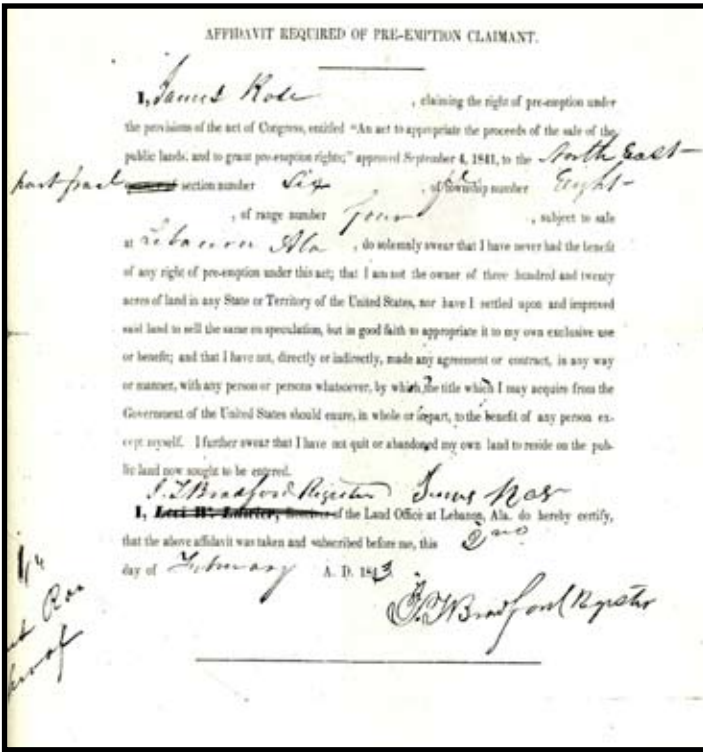 AFFIDAVIT REQUIRED OF PRE-EMPTION CLAIMANT.
I, James Rose , claiming the right of pre-emption under
the provisions of the act of Congress, entitled "An act to appropriate the proceeds of the sale of the
public lands, and to grant pre-emption rights;" approved September 4, 1841, to the North East
part fracl section number Six , of township number Eight
, of range number four , subject to sale
at Lebanon Ala , do solemnly swear that I have never had the benefit
of any right of pre-emption under this act; that I am not the owner of three hundred and twenty
acres of land in any State or Territory of the United States, nor have I settled upon and improved
said land to sell the same on speculation, but in good faith to appropriate it to my own exclusive use
or benefit; and that I have not, directly or indirectly, made any agreement or contract, in any way
or manner, with any person or persons whatsoever, by which the title which I may acquire from the
Government of the United States should enure, in whole or in part, to the benefit of any person ex-
cept myself. I further swear that I have not quit or abandoned my own land to reside on the pub-
lic land now sought to be entered.
J. T Bradford Register James
I, of the Land Office at Lebanon, Ala. do hereby certify,
that the above affidavit was taken and subscribed before me, this 2nd
day of February A. D. 1843
J. T Bradford Register
proof